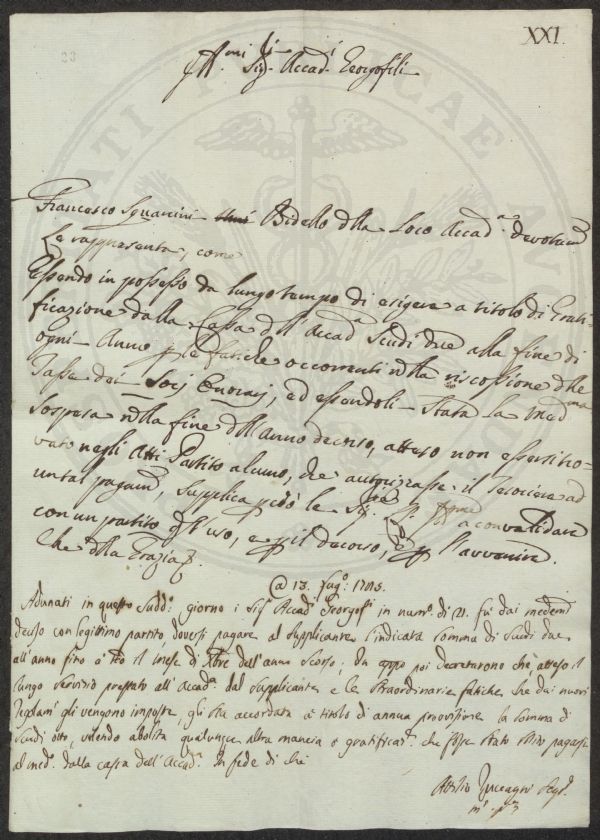 XXI.
33
Ill.mi Sig.ri Accad.i Georgofili
Francesco Sgnanini Bidello dlla Loco Accad.a devotam.
Le rappresenta, come
Essendo in possesso da lungo tempo di esigere a titolo di Grati=
ficazione dalla Cassa dll' Accad.a Scudi due alla fine di
ogni Anno p le fatiche occorrenti nlla riscossione dlle
Tasse dei Socj Onorarj, ed essendoli stata la med.ma
sospesa nlla fine dll' Anno decorso, atteso non essersi tro=
vato negli Atti Partito alcuno, che autorizzasse il Tesoriere ad
un tal pagam., supplica p ciò le Sig.rie a convalidare
con un partito dll' uso, e p il decorso, e p l'avvenire.
Che dlla Grazia
@ 13. Lug.o 1785.
Adunati in questo sudd.o giorno i Sig.i Accad.i Georgof.i in num.o di 21. fù dai medemi
deciso con legittimo partito, doversi pagare al supplicante l'indicata somma di scudi due
all'anno fino a tto il mese di Xbre dell'anno scorso; In appo poi decretarono che atteso il
lungo servizio prestato all'Accad.a dal supplicante e le straordinarie fatiche che dai nuovi
regolam.i gli vengono imposte, gli sia accordata a titolo di annua provvisione la somma di
scudi otto, volendo abolita qualunque altra mancia o gratificaz.e che fosse stato solito pagarsi
al med.o dalla cassa dell'Accad.a In fede di che
Attilio Zuccagni Seg.o
m.o p.a